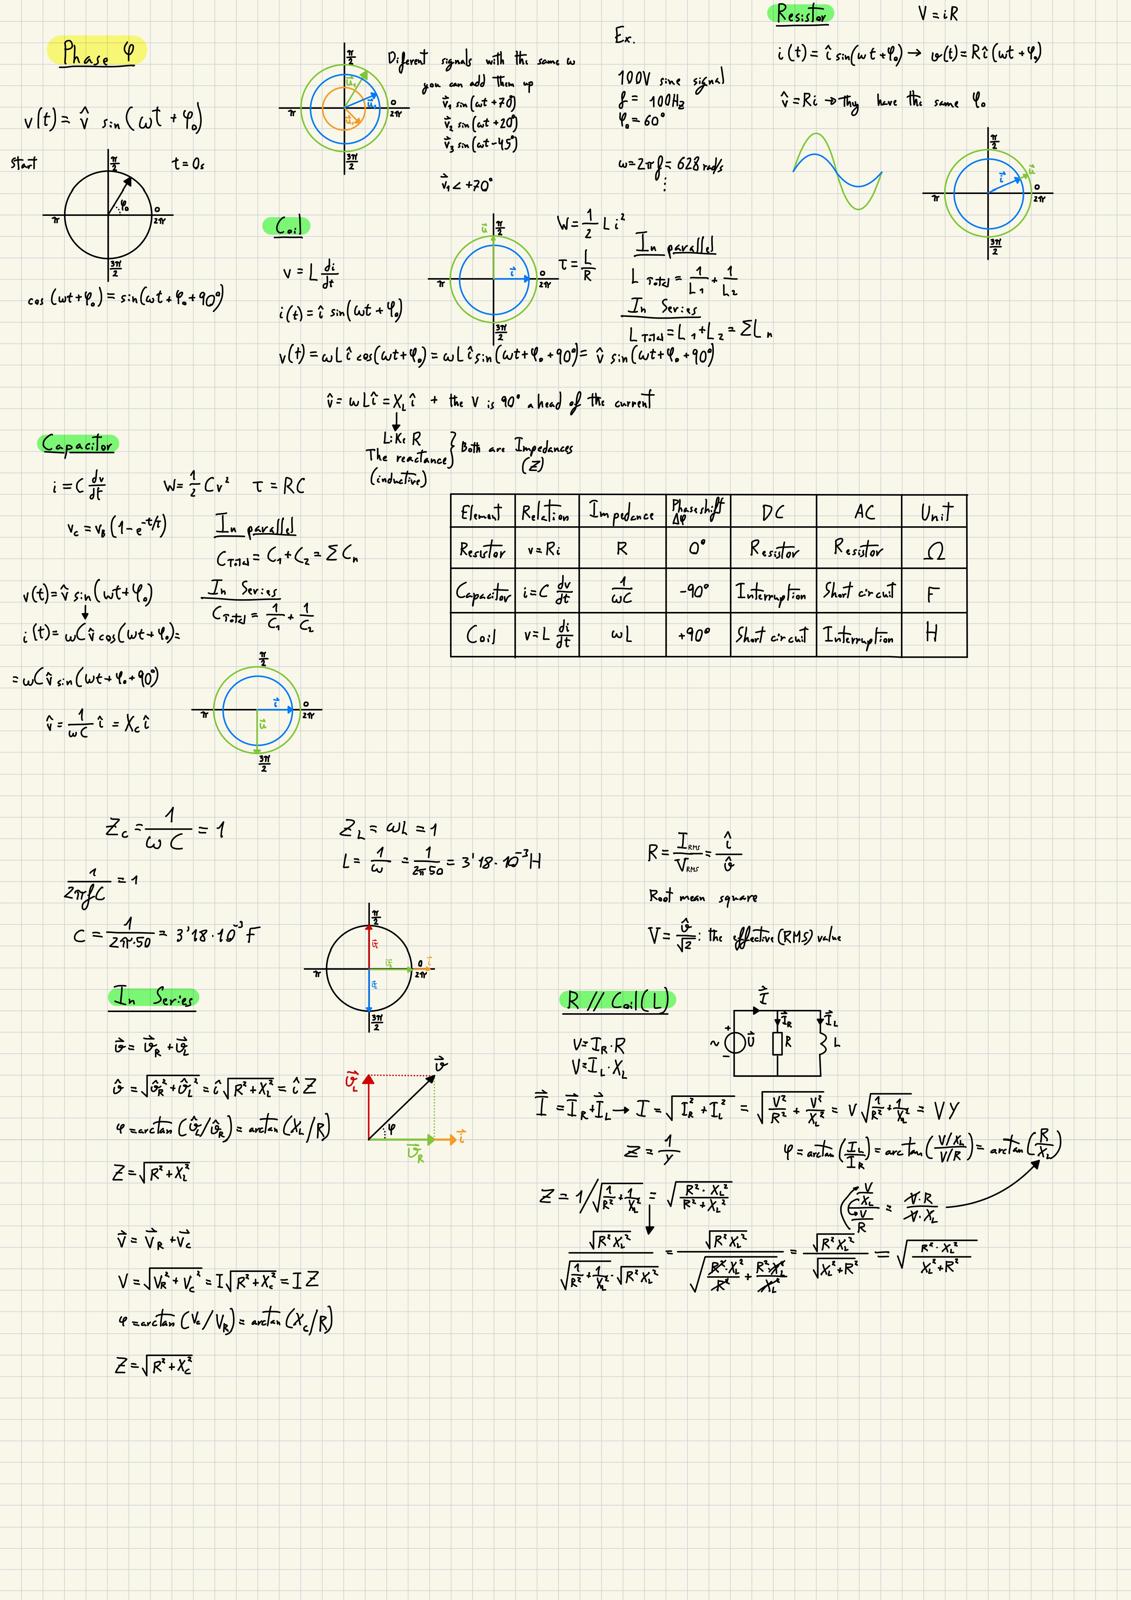 Phase φ
v(t) = v̂ sin(ωt + φ₀)
start
t = 0s
π/2
π
φ₀
0
2π
3π/2
cos(ωt+φ₀) = sin(ωt+φ₀+90°)
π/2
π
0
2π
3π/2
Diferent signals with the same ω
you can add them up
v⃗₁ sin(ωt+70)
v⃗₂ sin(ωt+20°)
v⃗₃ sin(ωt-45°)
v⃗₁ < +70°
Ex.
100V sine signal
f = 100Hz
φ₀ = 60°
ω = 2πf = 628 rad/s
⋮
Resistor
V = iR
i(t) = î sin(ωt+φ₀) → v(t) = Rî(ωt+φ₀)
v̂ = Ri → They have the same φ₀
π/2
π
0
2π
3π/2
Coil
v = L di/dt
i(t) = î sin(ωt+φ₀)
π/2
0
2π
3π/2
W = 1/2 L i²
τ = L/R
In parallel
L Total = 1/L₁ + 1/L₂
In Series
L Total = L₁ + L₂ = ΣLn
v(t) = ωLî cos(ωt+φ₀) = ωLî sin(ωt+φ₀+90°) = v̂ sin(ωt+φ₀+90°)
v̂ = ωLî = X_L î + the V is 90° ahead of the current
↓
Like R
The reactance
(inductive)
} Both are Impedances
(Z)
Capacitor
i = C dv/dt W = 1/2 Cv² τ = RC
v_c = v_B (1-e^(-t/τ))
In parallel
C Total = C₁ + C₂ = ΣCn
In Series
C Total = 1/C₁ + 1/C₂
v(t) = v̂ sin(ωt+φ₀)
↓
i(t) = ωCv̂ cos(ωt+φ₀) =
= ωCv̂ sin(ωt+φ₀+90°)
v̂ = 1/ωC î = X_c î
π/2
π
i⃗
0
2π
3π/2
Element Relation Impedance Phase shift Δφ DC AC Unit
Resistor v=Ri R 0° Resistor Resistor Ω
Capacitor i=C dv/dt 1/ωC -90° Interruption Short circuit F
Coil v=L di/dt ωL +90° Short circuit Interruption H
Z_C = 1/ωC = 1
1/2πfC = 1
C = 1/2π·50 = 3'18·10⁻³ F
Z_L = ωL = 1
L = 1/ω = 1/2π50 = 3'18·10⁻³ H
R = I_RMS/V_RMS = î/v̂
Root mean square
V = v̂/√2 : the effective (RMS) value
π/2
π
0
2π
3π/2
In Series
v⃗ = v⃗_R + v⃗_L
v̂ = √(v̂_R² + v̂_L²) = î√(R² + X_L²) = î Z
φ = arctan(v̂_L/v̂_R) = arctan(X_L/R)
Z = √(R² + X_L²)
v⃗_L
v⃗
φ
v⃗_R
i⃗
V⃗ = V⃗_R + V⃗_C
V = √(V_R² + V_C²) = I√(R² + X_C²) = I Z
φ = arctan(V_C/V_R) = arctan(X_C/R)
Z = √(R² + X_C²)
R // Coil (L)
V = I_R · R
V = I_L · X_L
I⃗
I⃗_R
I⃗_L
~
+
-
U⃗
R
L
I⃗ = I⃗_R + I⃗_L → I = √(I_R² + I_L²) = √(V²/R² + V²/X_L²) = V√(1/R² + 1/X_L²) = VY
Z = 1/Y
φ = arctan(I_L/I_R) = arctan((V/X_L)/(V/R)) = arctan(R/X_L)
Z = 1/√(1/R² + 1/X_L²) = √(R²·X_L²/(R²+X_L²))
(V/X_L)/(V/R) = V·R/V·X_L
√(R²X_L²)/(√(1/R² + 1/X_L²)·√(R²X_L²)) = √(R²X_L²)/√(R²·X_L²/R² + R²·X_L²/X_L²) = √(R²X_L²)/√(X_L²+R²) = √(R²·X_L²/(X_L²+R²))